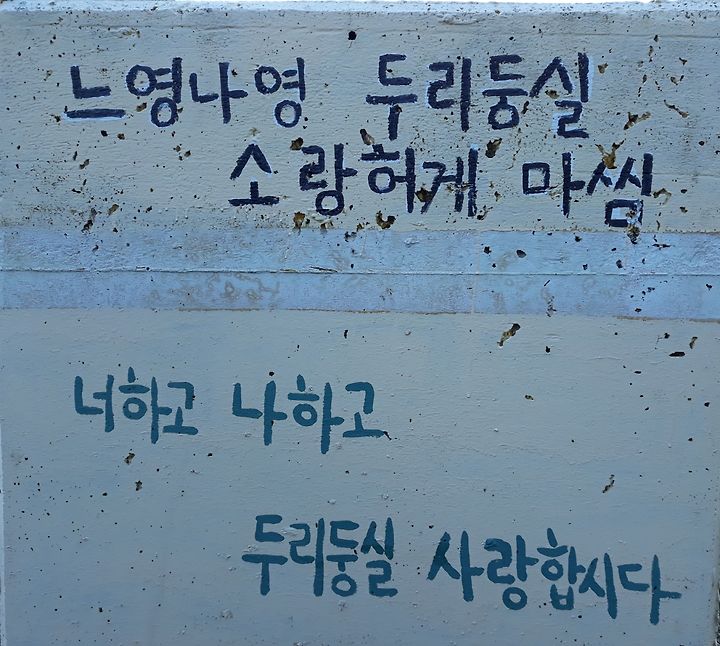 느영나영 두리둥실
소랑허게 마씸
너하고 나하고
두리둥실 사랑합시다